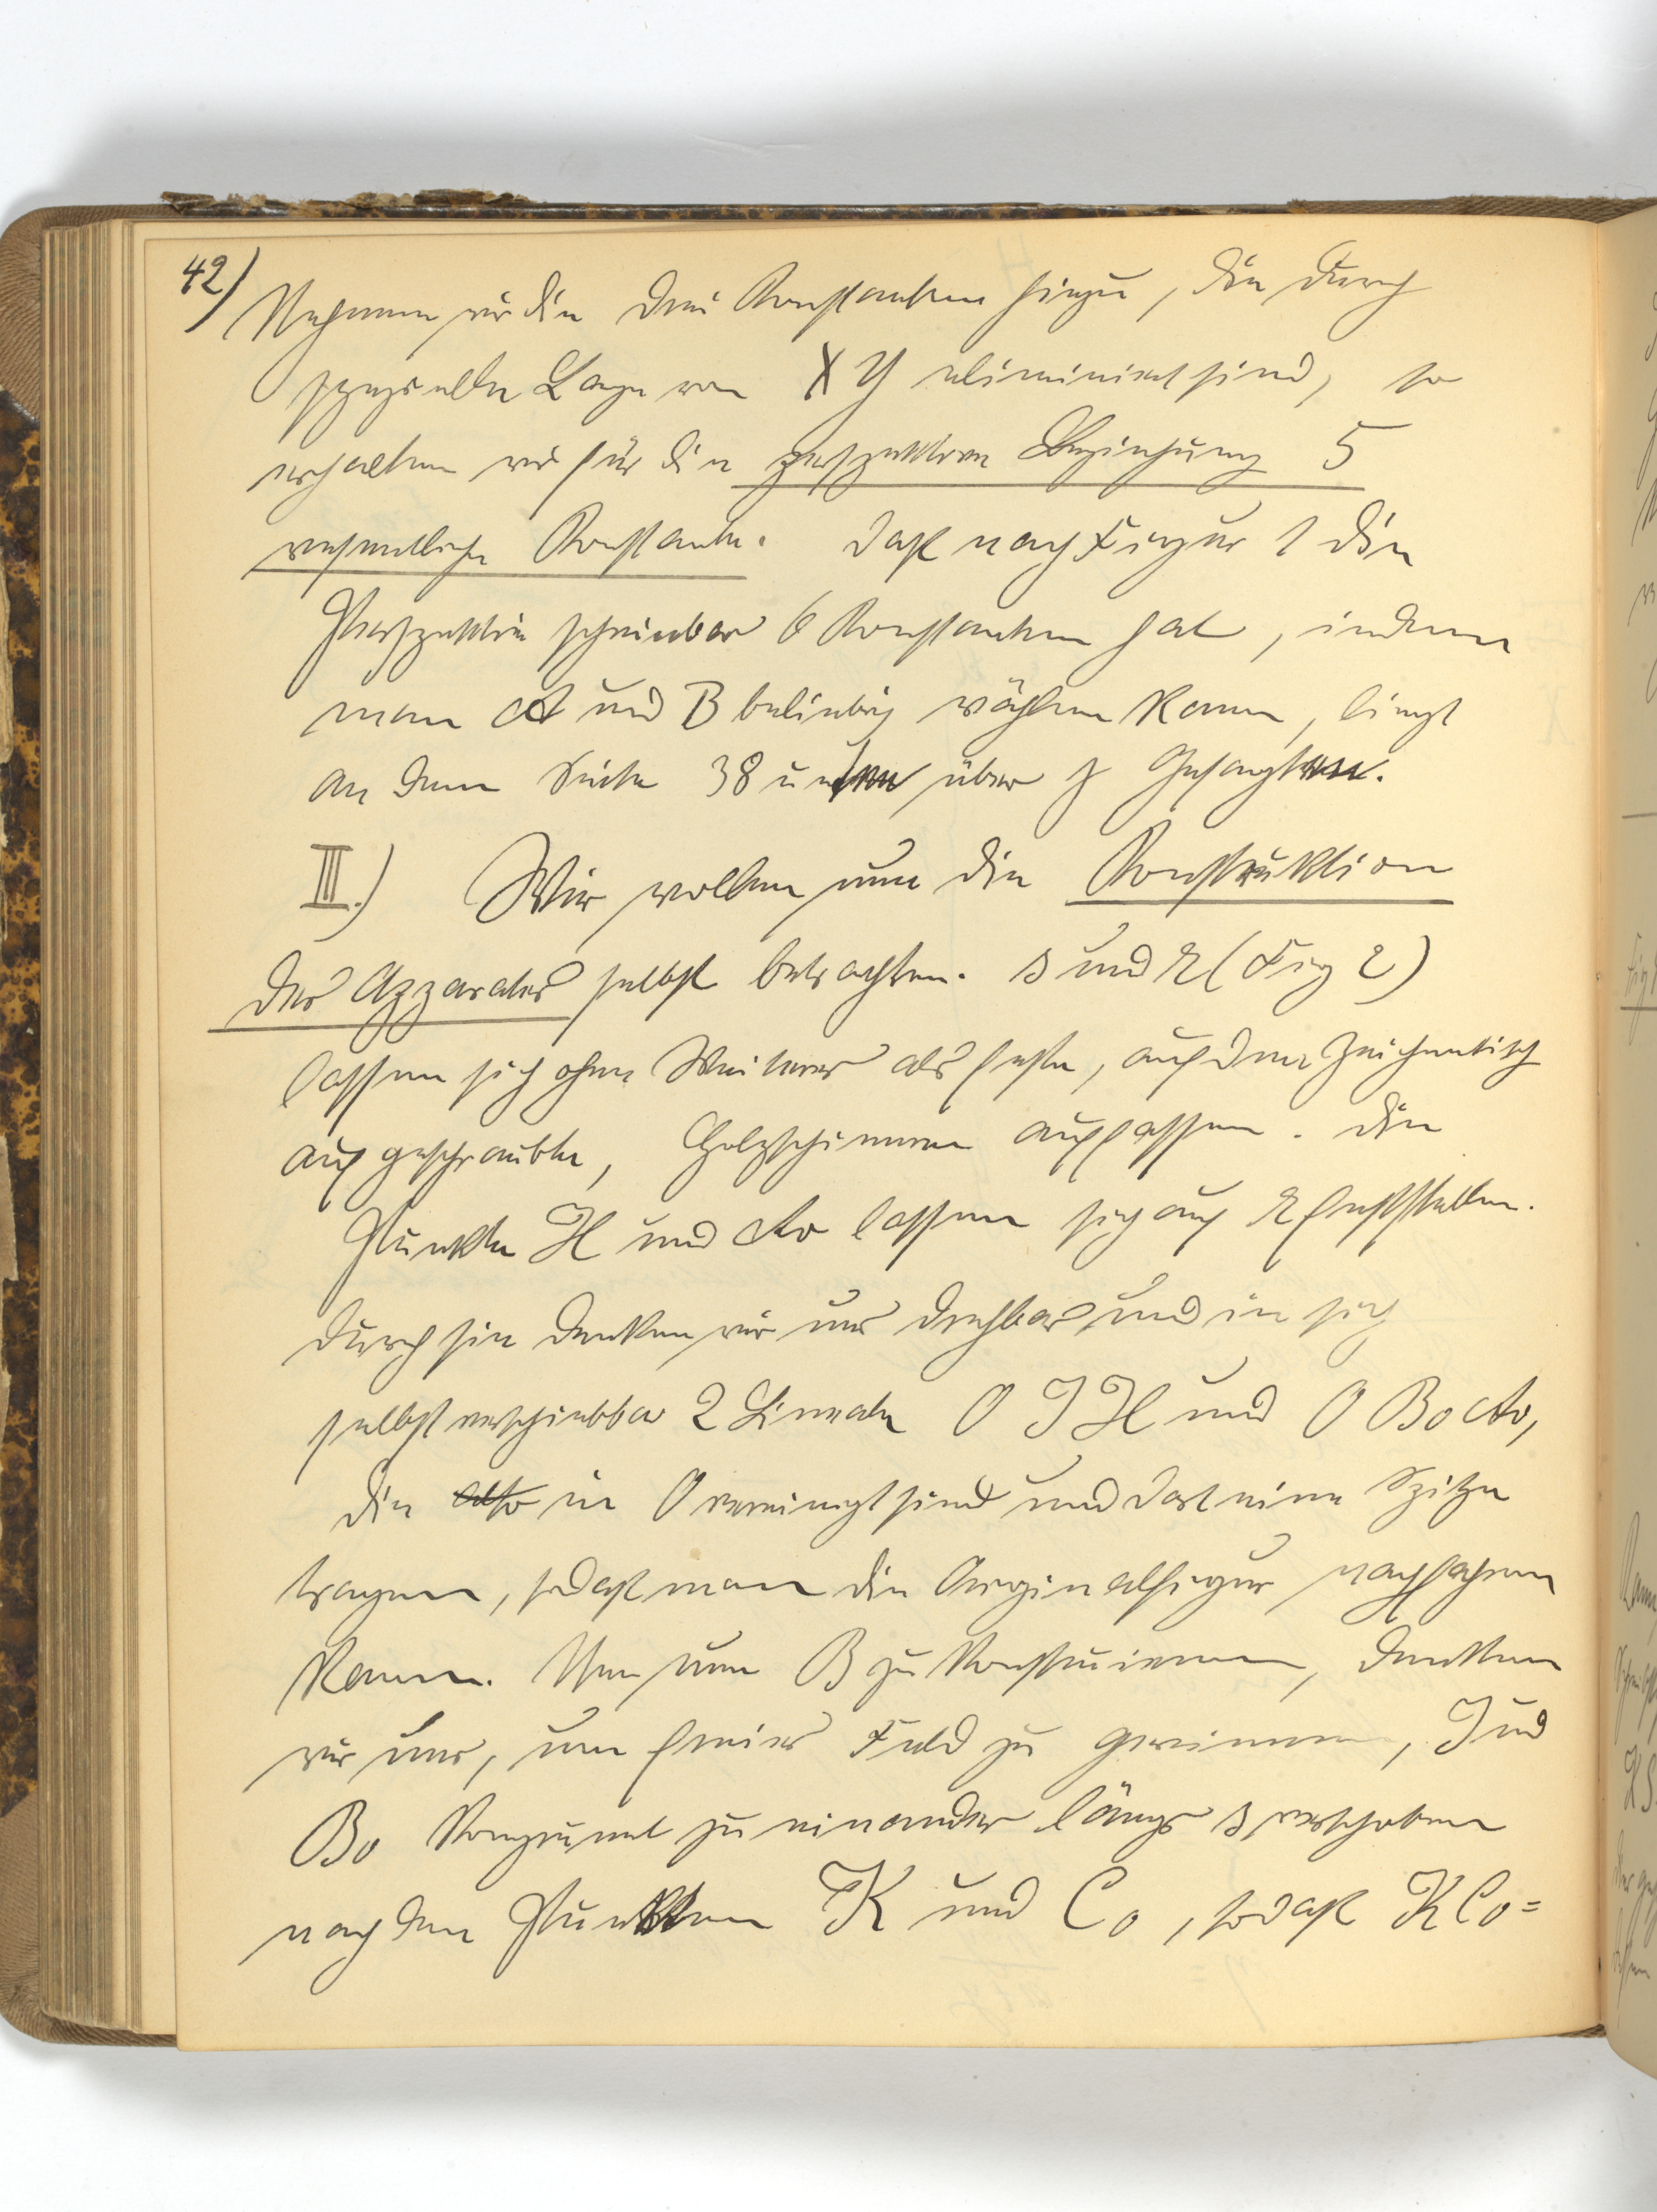 42) Nehmen wir die drei Konstanten hinzu, die durch
spezielle Lage von X Y eliminiert sind, so
erhalten wir für die perspektive Beziehung 5
wesentliche Konstante. Daß nach Figur 1 die
Perspektive scheinbar 6 Konstanten hat, indem
man A und B beliebig wählen kann, liegt
an dem Seite 38 unten über J Gesagten.
III.) Wir wollen nun die Konstruktion
des Apparates selbst betrachten. s und r (Fig 2)
lassen sich ohne Weiteres als feste, auf dem Zeichentisch
aufgeschraubte, Holzschienen auffassen. Die
Punkte H und A0 lassen sich auf r feststellen.
Durch sie denken wir uns drehbar und in sich
selbst verschiebbar 2 Lineale O J H und O B0 A0,
die also in O vereinigt sind und dort eine Spitze
tragen, sodaß man die Orginalfigur nachfahren
kann. Um nun B zu konstruieren, denken
wir uns, um freies Feld zu gewinnen, J und
B0 kongruent zu einander längs s verschoben
nach den Punkten K und C0, sodaß K C0 =